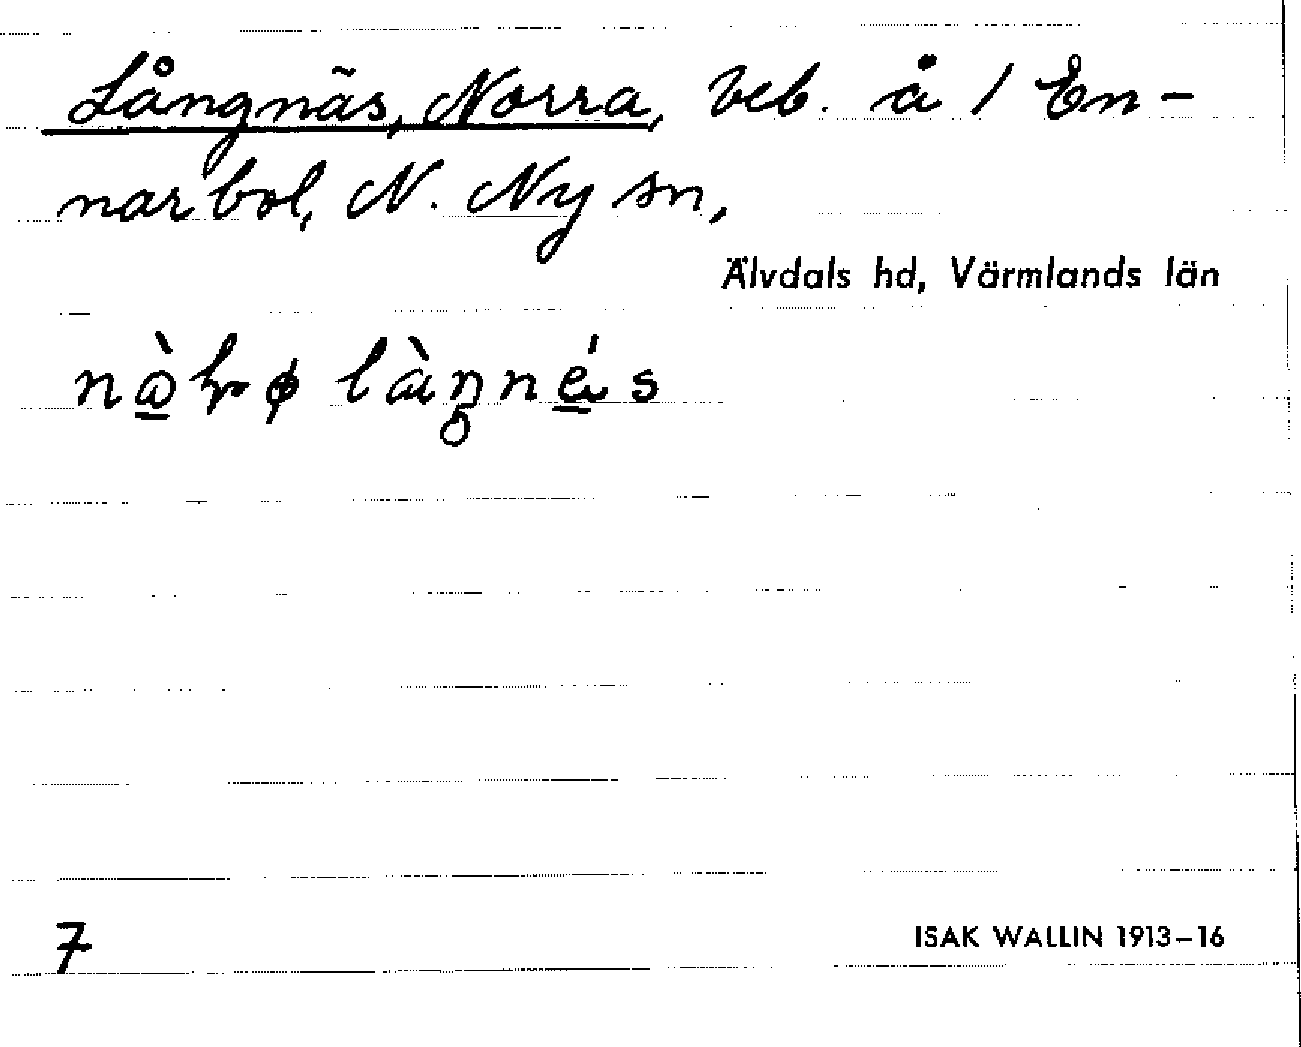 Långnäs, Norra, beb. å 1 En-
narbol, N. Ny sn,
Älvdals hd, Värmlands län
7
ISAK WALLIN 1913–16